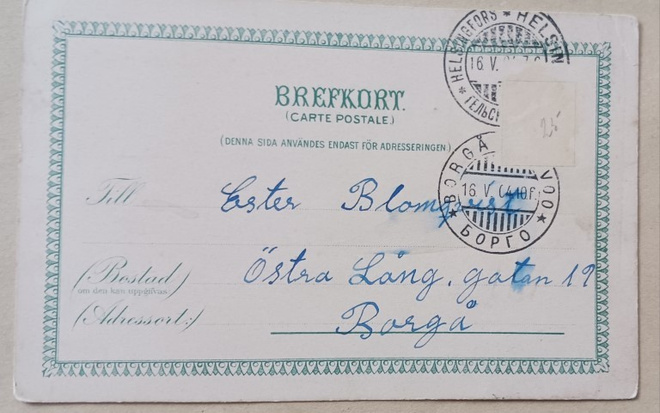 HELSINGFORS * HELSIN
16. V.
ГЕЛЬС
BREFKORT.
(CARTE POSTALE.)
(DENNA SIDA ANVÄNDES ENDAST FÖR ADRESSERINGEN.)
25
BORGÅ VOO
16. V. 04.10 F.
* БОРГО *
Till Ester Blomqvist
(Bostad) Östra Lång. gatan 19
om den kan uppgifvas
(Adressort:) Borgå